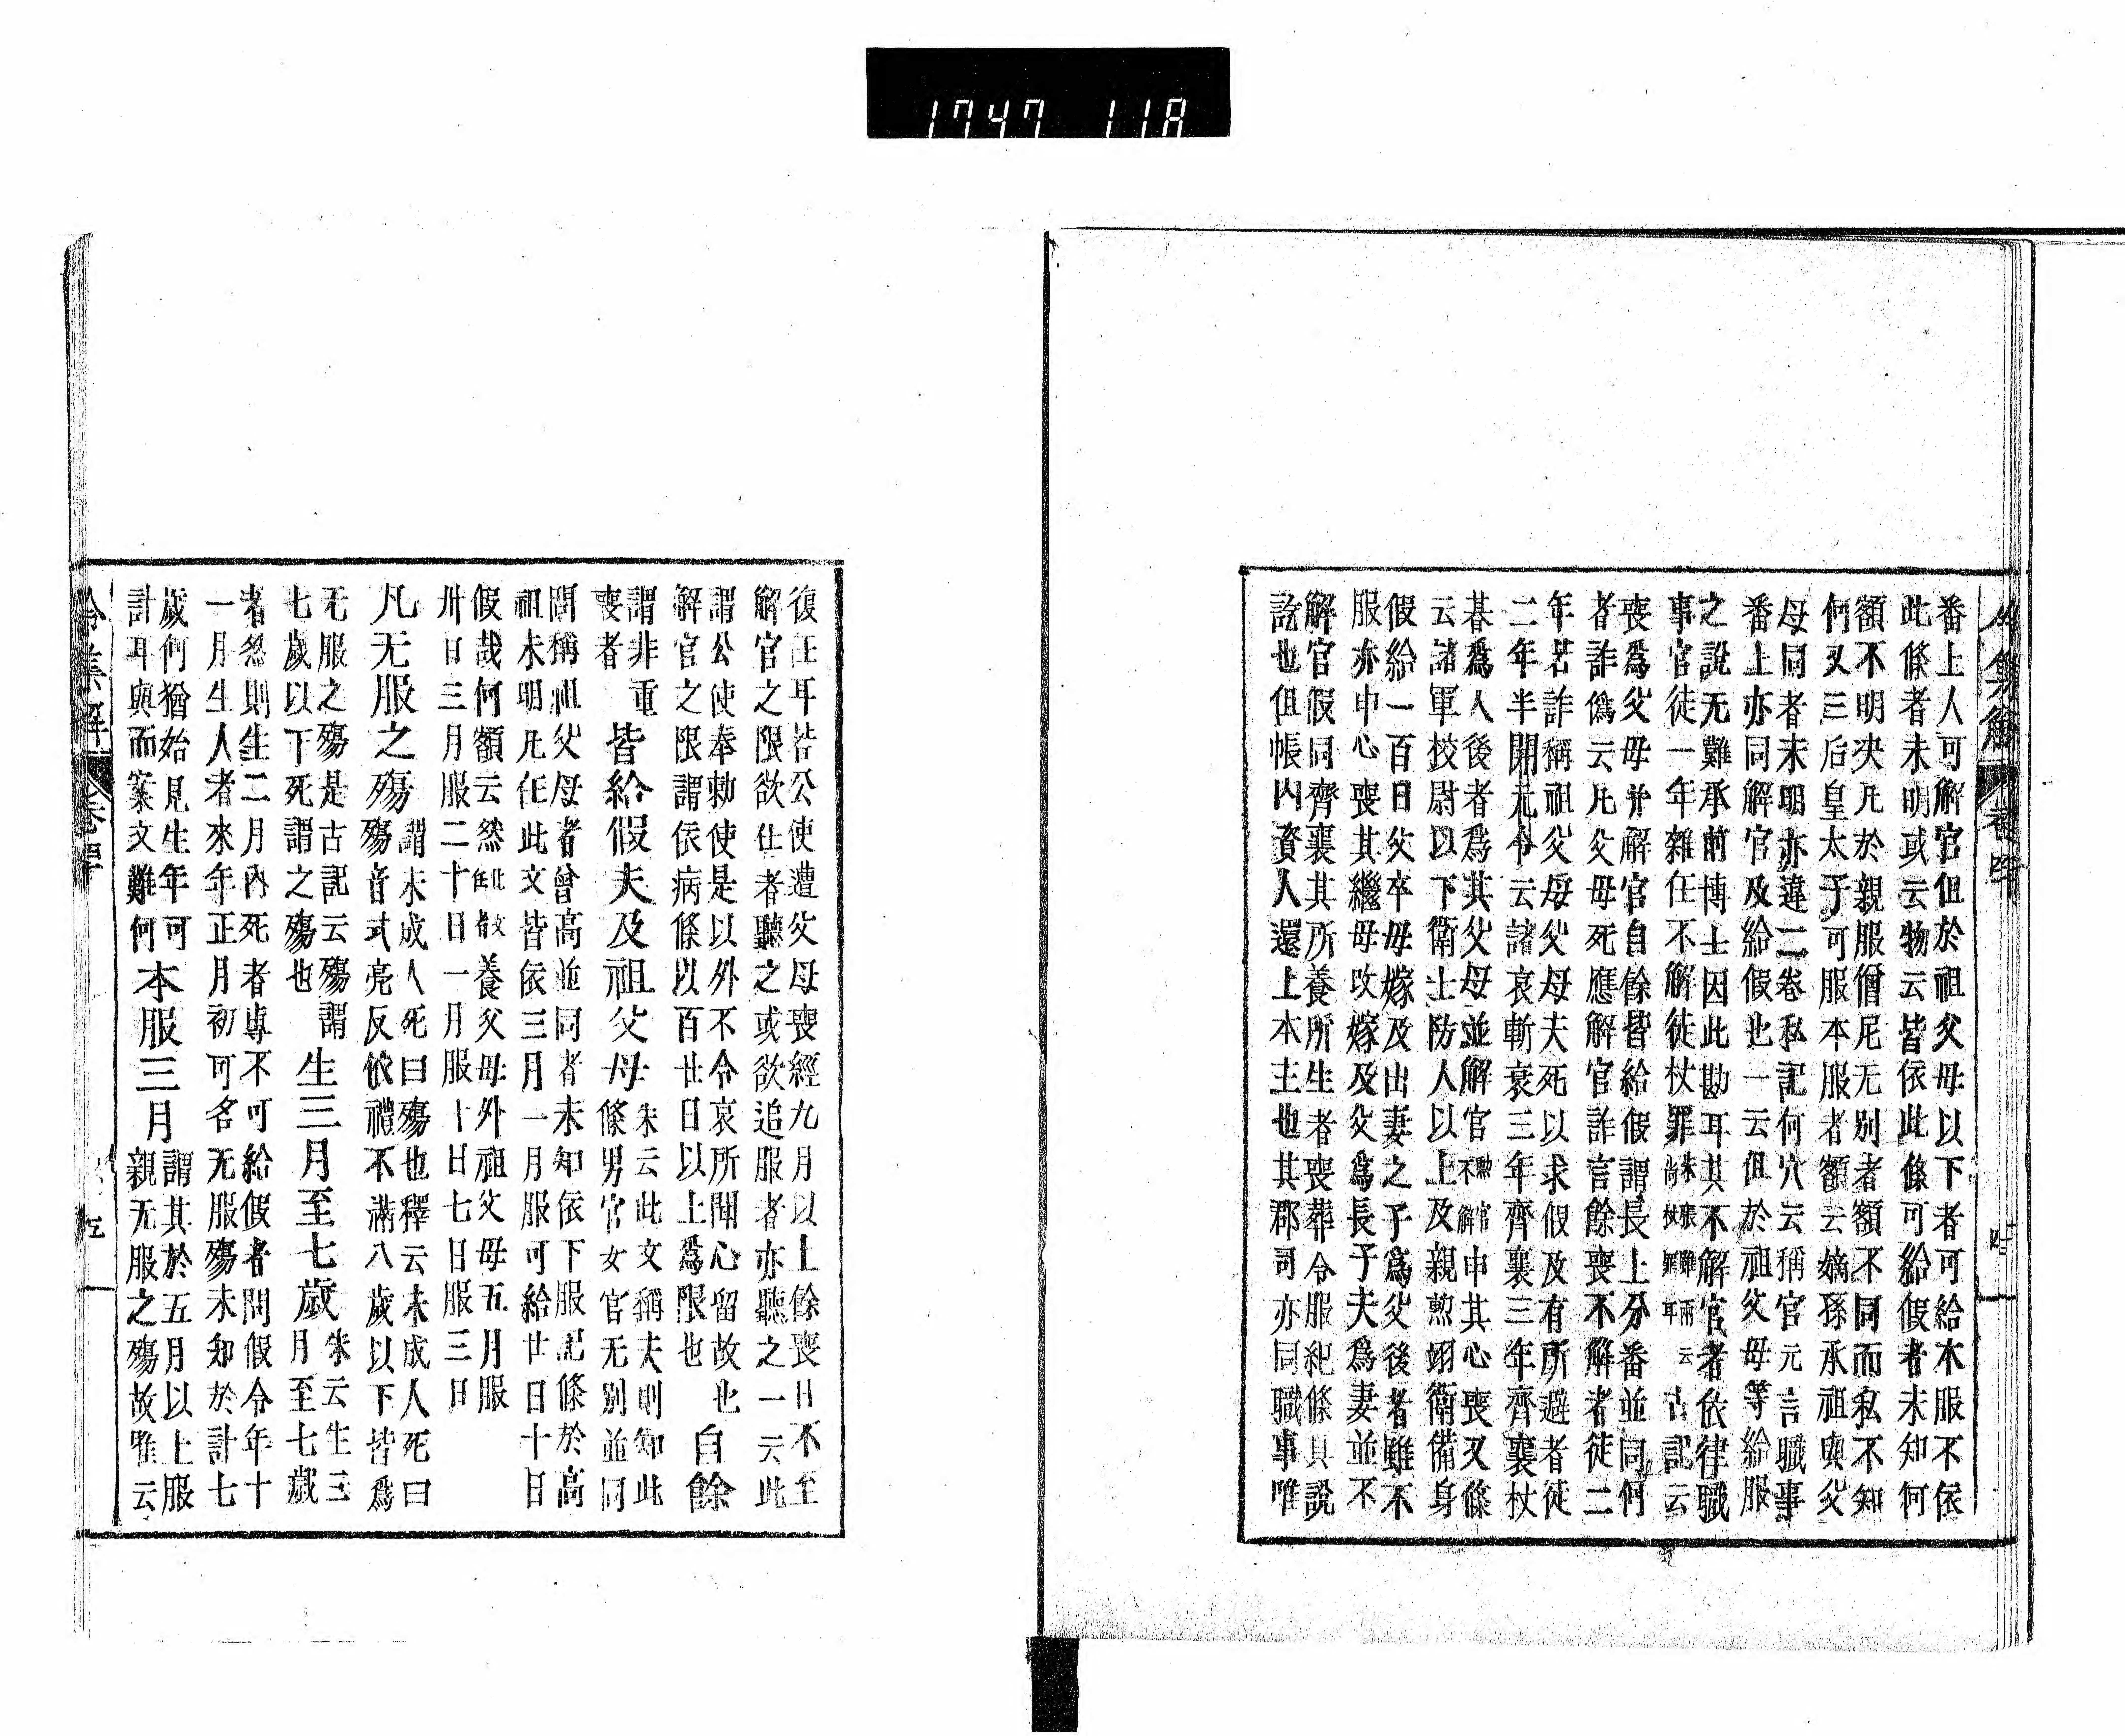 1747 118
令集解 卷四 四
番上人可解官但於祖父母以下者可給本服不依
此條者未明或云物云皆依此條可給假者未知何
額不明决凡於親服僧尼无別者額不同而私不知
何又三后皇太子可服本服者額云嫡孫承祖與父
母同者未明亦違二卷私記何穴云稱官元言職事
番上亦同解官及給假也一云但於祖父母等給服
之說无難承前博士因此勘耳其不解官者依律職
事官徒一年雜任不解徒杖罪朱張難兩云尚杖罪耳古記云
喪爲父母并解官自餘皆給假謂長上分番並同何
者詐僞云凡父母死應解官詐言餘喪不解者徒二
年若詐稱祖父母父母夫死以求假及有所避者徒
二年半開元令云諸哀斬衰三年齊襄三年齊襄杖
朞爲人後者爲其父母並解官勳官不解申其心喪又條
云諸軍校尉以下衛士防人以上及親勲翊衛備身
假給一百日父卒母嫁及出妻之子爲父後者雖不
服亦申心喪其繼母改嫁及父爲長子夫爲妻並不
解官假同齊襄其所養所生者喪葬令服紀條具說
訖也但帳內資人還上本主也其郡司亦同職事唯
復任耳若公使遭父母喪經九月以上餘喪日不至
解官之限欲仕者聽之或欲追服者亦聽之一云此
謂公使奉勅使是以外不令哀所聞心留故也
解官之限謂依病條以百廿日以上爲限也
自餘
謂非重
喪者
皆給假夫及祖父母
朱云此文稱夫則知此
條男官女官无別並同
問稱祖父母者曾高並同者未知依下服記條於高
祖未明凡任此文皆依三月一月服可給廿日十日
假哉何額云然養父母外祖父母五月服
卅日三月服二十日一月服十日七日服三日
凡无服之殤
謂未成人死曰殤也釋云未成人死曰
殤音式亮反依禮不滿八歲以下皆爲
无服之殤是古記云殤謂
七歲以下死謂之殤也
生三月至七歲
朱云生三
月至七歲
者然則生二月內死者專不可給假者問假令年十
一月生人者來年正月初可名无服殤未知於計七
歲何猶始見生年可
計耳與而案文難何
本服三月
謂其於五月以上服
親无服之殤故唯云
令集解 卷四 五